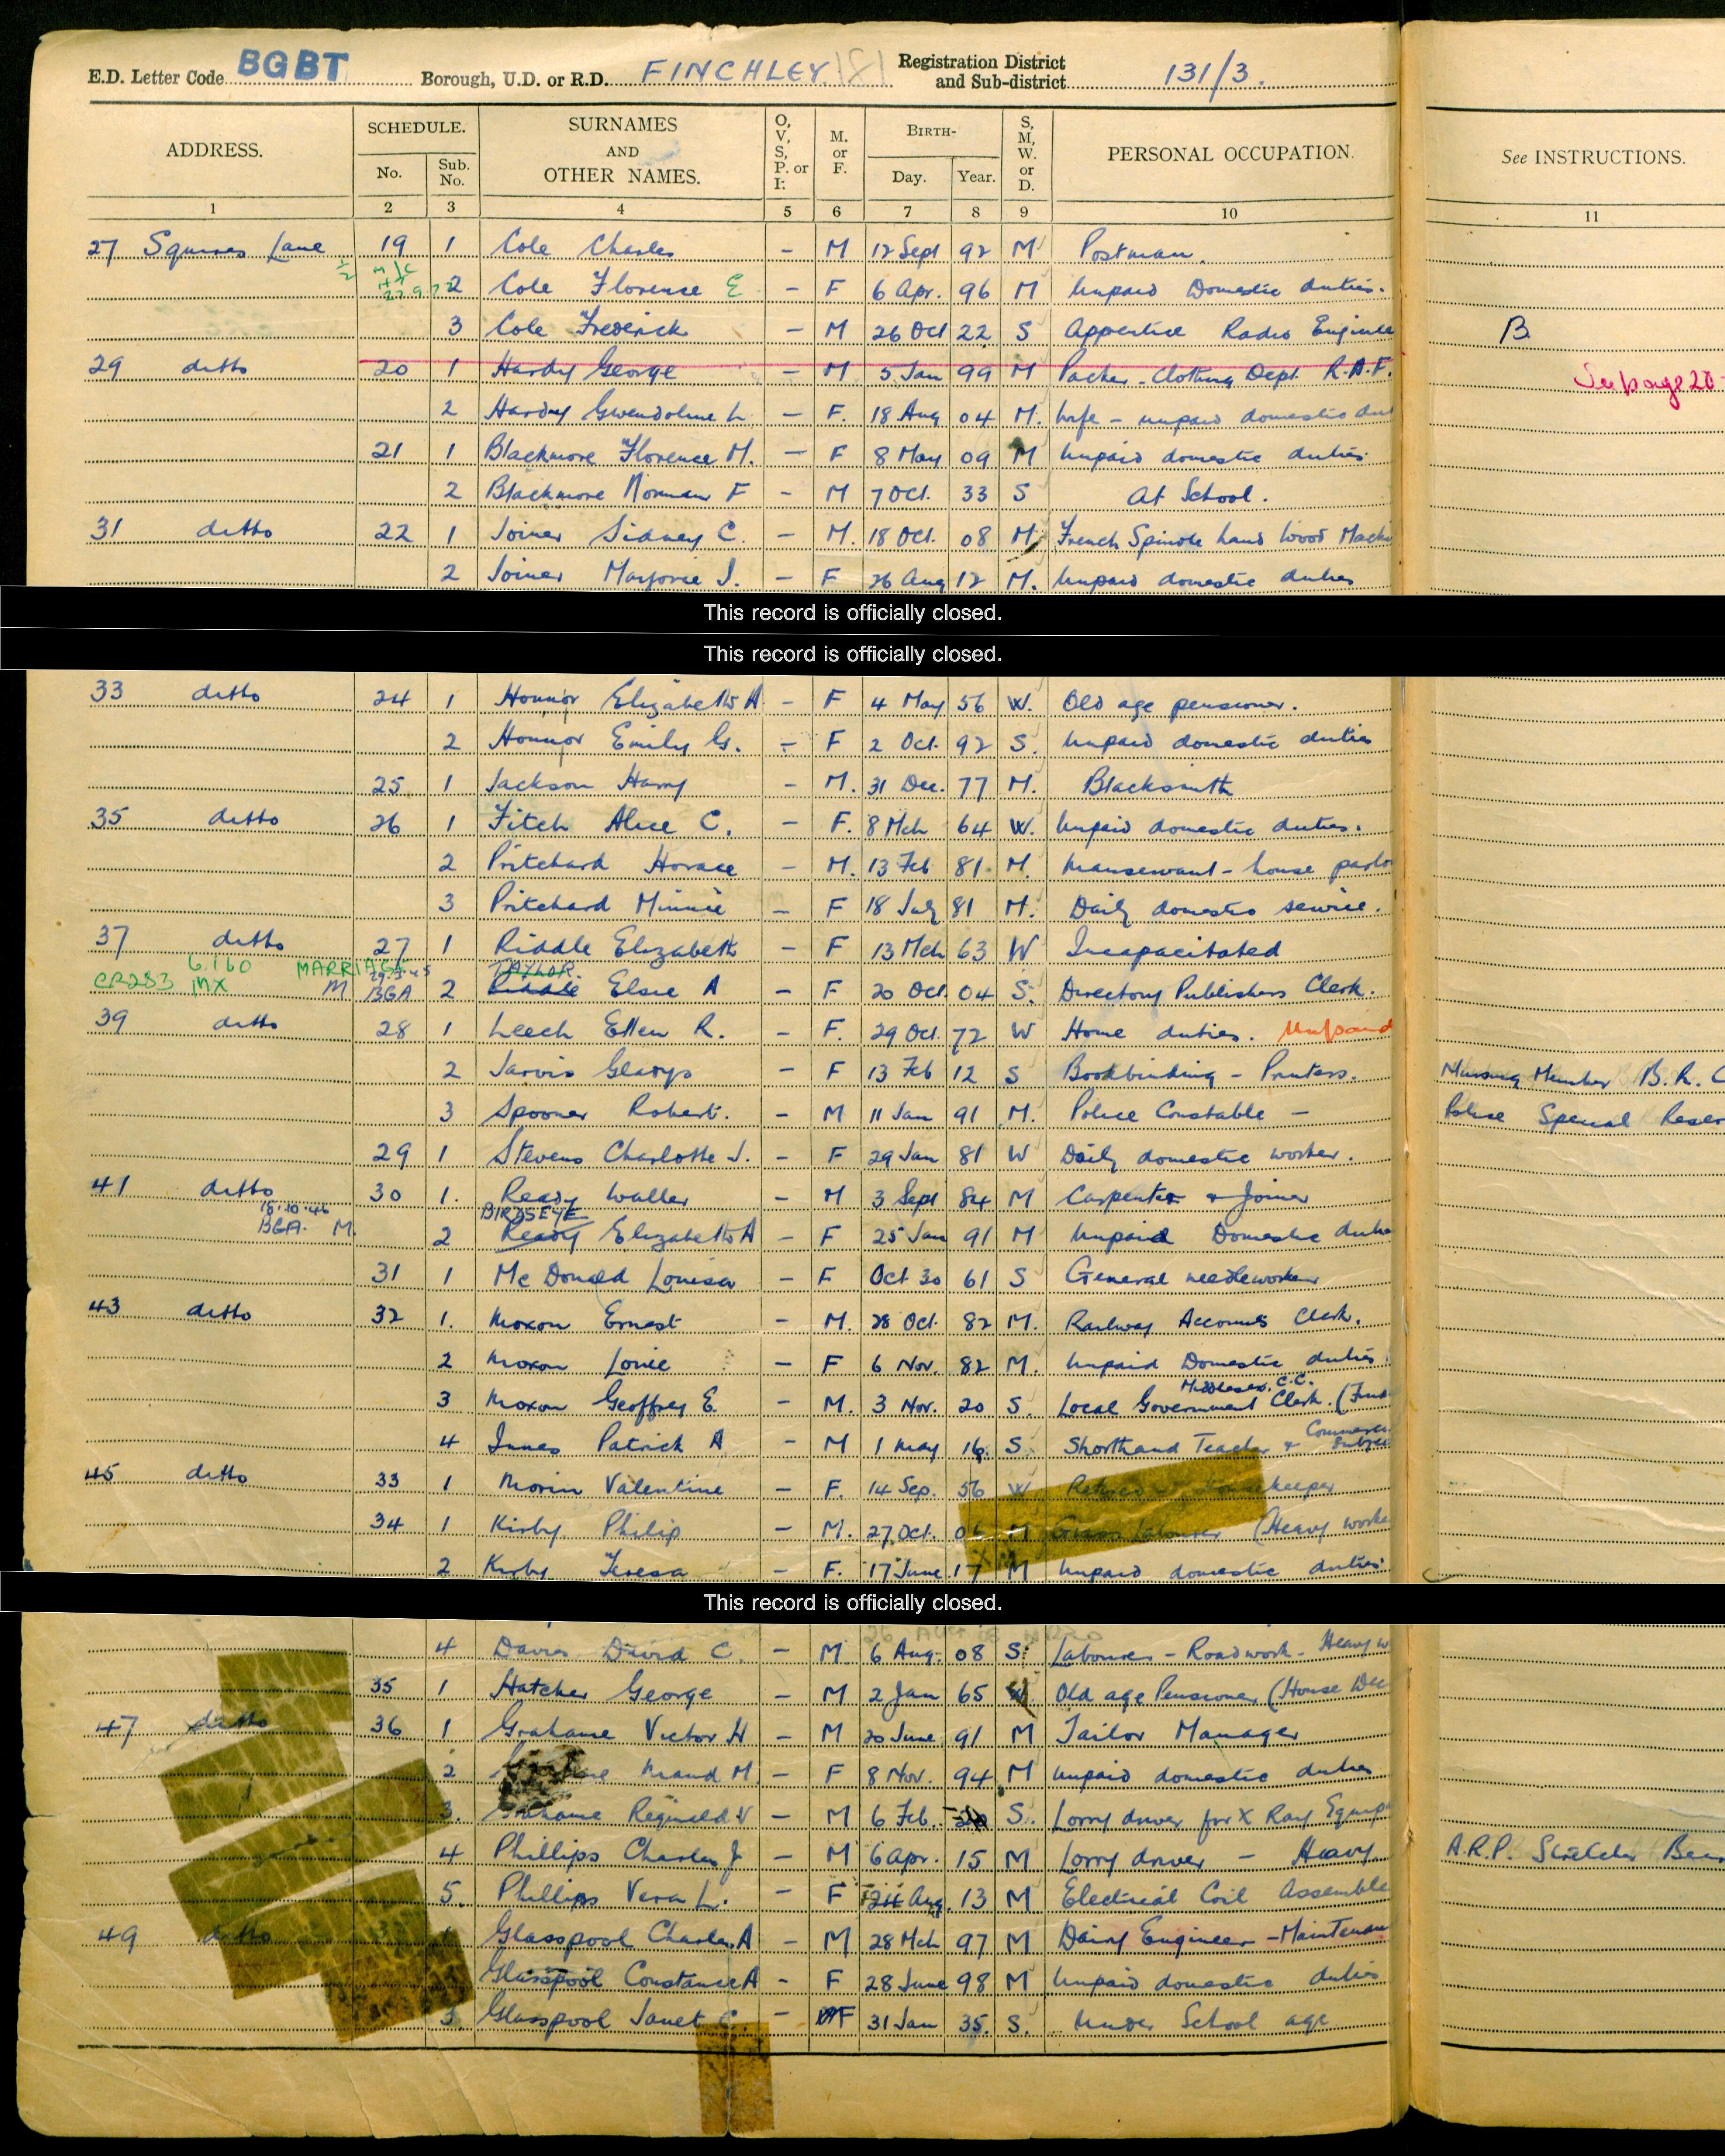 E.D. Letter Code BGBT Borough, U.D. or R.D. FINCHLEY 181 Registration District and Sub-district 131/3.
ADDRESS. SCHEDULE. No. Sub. No. SURNAMES AND OTHER NAMES. O, V, S, P. or I: M. or F. BIRTH- Day. Year. S, M, W. or D. PERSONAL OCCUPATION. See INSTRUCTIONS.
1 2 3 4 5 6 7 8 9 10 11
27 Squires Lane 19 1 Cole Charles - M 12 Sept 92 M Postman.
2 Cole Florence E - F 6 Apr. 96 M Unpaid Domestic duties.
3 Cole Frederick - M 26 Oct 22 S Apprentice Radio Enginee B
29 ditto 20 1 Hardy George - M 5 Jan 99 M Packer - Clothing Dept R.A.F. See page 20
2 Hardy Gwendoline L - F. 18 Aug 04 M. Wife - unpaid domestic dut
21 1 Blackmore Florence M. - F 8 May 09 M Unpaid domestic duties
2 Blackmore Norman F - M 7 Oct. 33 S At School.
31 ditto 22 1 Joiner Sidney C. - M. 18 Oct. 08 M French Spindle hand Wood Machi
2 Joiner Marjorie J. - F 26 Aug 12 M. Unpaid domestic duties
This record is officially closed.
This record is officially closed.
33 ditto 24 1 Honnor Elizabeth A - F 4 May 56 W. Old age pensioner.
2 Honnor Emily G. - F 2 Oct. 92 S. Unpaid domestic duties
25 1 Jackson Harry - M. 31 Dec. 77 M. Blacksmith
35 ditto 26 1 Fitch Alice C. - F. 8 Mch 64 W. Unpaid domestic duties.
2 Pritchard Horace - M. 13 Feb 81 M. Manservant - house parlo
3 Pritchard Minnie - F 18 July 81 M. Daily domestic service.
37 ditto 27 1 Riddle Elizabeth - F 13 Mch 63 W Incapacitated
CR283 MX MARRIAGE M BGA TAYLOR
2 Riddle Elsie A - F 20 Oct 04 S. Directory Publishers Clerk.
39 ditto 28 1 Leech Ellen R. - F. 29 Oct. 72 W Home duties. Unpaid
2 Jarvis Gladys - F 13 Feb 12 S Bookbinding - Printers. Nursing Member B.R.C
3 Spooner Robert. - M 11 Jan 91 M. Police Constable - Police Special Reser
29 1 Stevens Charlotte J. - F 29 Jan 81 W Daily domestic worker.
41 ditto 30 1. Ready Walter - M 3 Sept 84 M Carpenter & Joiner
18.10.46 BGA. M. BIRDSEYE
2 Ready Elizabeth A - F 25 Jan 91 M Unpaid Domestic dutie
31 1 Mc Donald Louisa - F Oct 30 61 S General needleworker
43 ditto 32 1. Moxon Ernest - M. 28 Oct. 82 M. Railway Accounts Clerk.
2 Moxon Louie - F 6 Nov. 82 M. Unpaid Domestic duties
Middlesex. C.C.
3 Moxon Geoffrey E. - M. 3 Nov. 20 S. Local Government Clerk.
4 Innes Patrick A - M 1 May 16. S Shorthand Teacher &
45 ditto 33 1 Morin Valentine - F. 14 Sep. 56 W Retired Housekeeper
34 1 Kirby Philip - M. 27 Oct. M Labourer (Heavy worke
2 Kirby Teresa - F. 17 June 17 M Unpaid domestic duties
This record is officially closed.
4 Davies David C. - M. 6 Aug. 08 S. Labourer - Roadwork - Heavy w
35 1 Hatcher George - M 2 Jan 65 W Old age Pensioner (House Dec
47 ditto 36 1 Grahame Victor H - M 20 June 91 M Tailor Manager
2 Maud M. - F 8 Nov. 94 M Unpaid domestic duties
3. Grahame Reginald V - M 6 Feb. S. Lorry driver for X Ray Equip
4 Phillips Charles J - M 6 Apr. 15 M Lorry driver - Heavy A.R.P. Stretcher Bear
5. Phillips Vera L. - F 24 Aug. 13 M Electrical Coil Assemble
49 ditto Glasspool Charles A - M 28 Mch 97 M Dairy Engineer - Maintenan
Glasspool Constance A - F 28 June 98 M Unpaid domestic duties
3. Glasspool Janet C. - F 31 Jan 35. S. Under School age